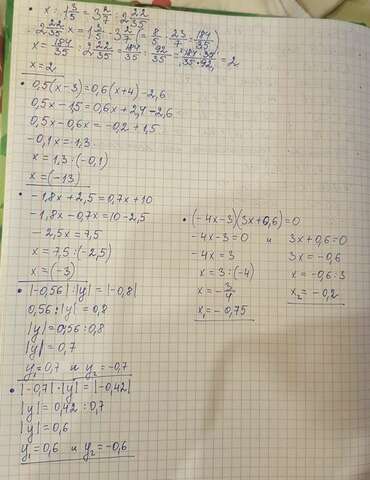 • x : 1 3/5 = 3 2/7 : 2 22/35
2 22/35 x = 1 3/5 · 3 2/7 (= 8/5 · 23/7 = 184/35)
x = 184/35 : 2 22/35 = 184/35 : 92/35 = 184·35/35·92 = 2
x = 2
• 0,5(x-3) = 0,6(x+4) - 2,6
0,5x - 1,5 = 0,6x + 2,4 - 2,6
0,5x - 0,6x = -0,2 + 1,5
-0,1x = 1,3
x = 1,3 : (-0,1)
x = (-13)
• -1,8x + 2,5 = 0,7x + 10
-1,8x - 0,7x = 10 - 2,5
-2,5x = 7,5
x = 7,5 : (-2,5)
x = (-3)
• |-0,56| : |y| = |-0,8|
0,56 : |y| = 0,8
|y| = 0,56 : 0,8
|y| = 0,7
y₁ = 0,7 и y₂ = -0,7
• |-0,7| · |y| = |-0,42|
|y| = 0,42 : 0,7
|y| = 0,6
y₁ = 0,6 и y₂ = -0,6
• (-4x-3)(3x+0,6) = 0
-4x-3=0 и 3x+0,6=0
-4x = 3 3x = -0,6
x = 3 : (-4) x = -0,6 : 3
x = -3/4 x₂ = -0,2
x₁ = -0,75